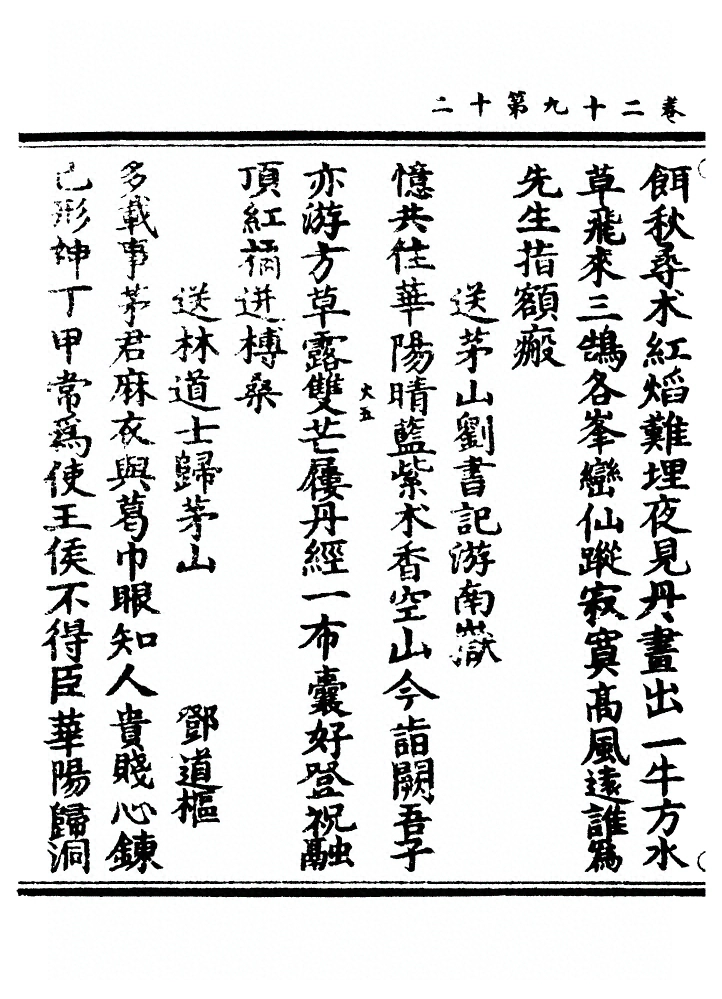 卷二十九第十二
餌秋尋朮紅熖難埋夜見丹晝出一牛方水
草飛來三鵠各峯巒仙蹤寂寞高風遠誰為
先生指額瘢
送茅山劉書記游南嶽
憶共往華陽晴藍紫朮香空山今詣闕吾子
大五
亦游方草露雙芒屨丹經一布囊好登祝融
頂紅摘迸榑桑
送林道士歸茅山　鄧道樞
多載事茅君麻衣與葛巾眼知人貴賤心鍊
己形神丁甲常爲使王侯不得臣華陽歸洞